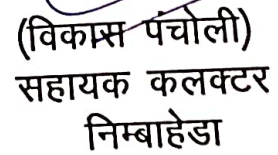 (विकास पंचोली)
सहायक कलक्टर
निम्बाहेडा